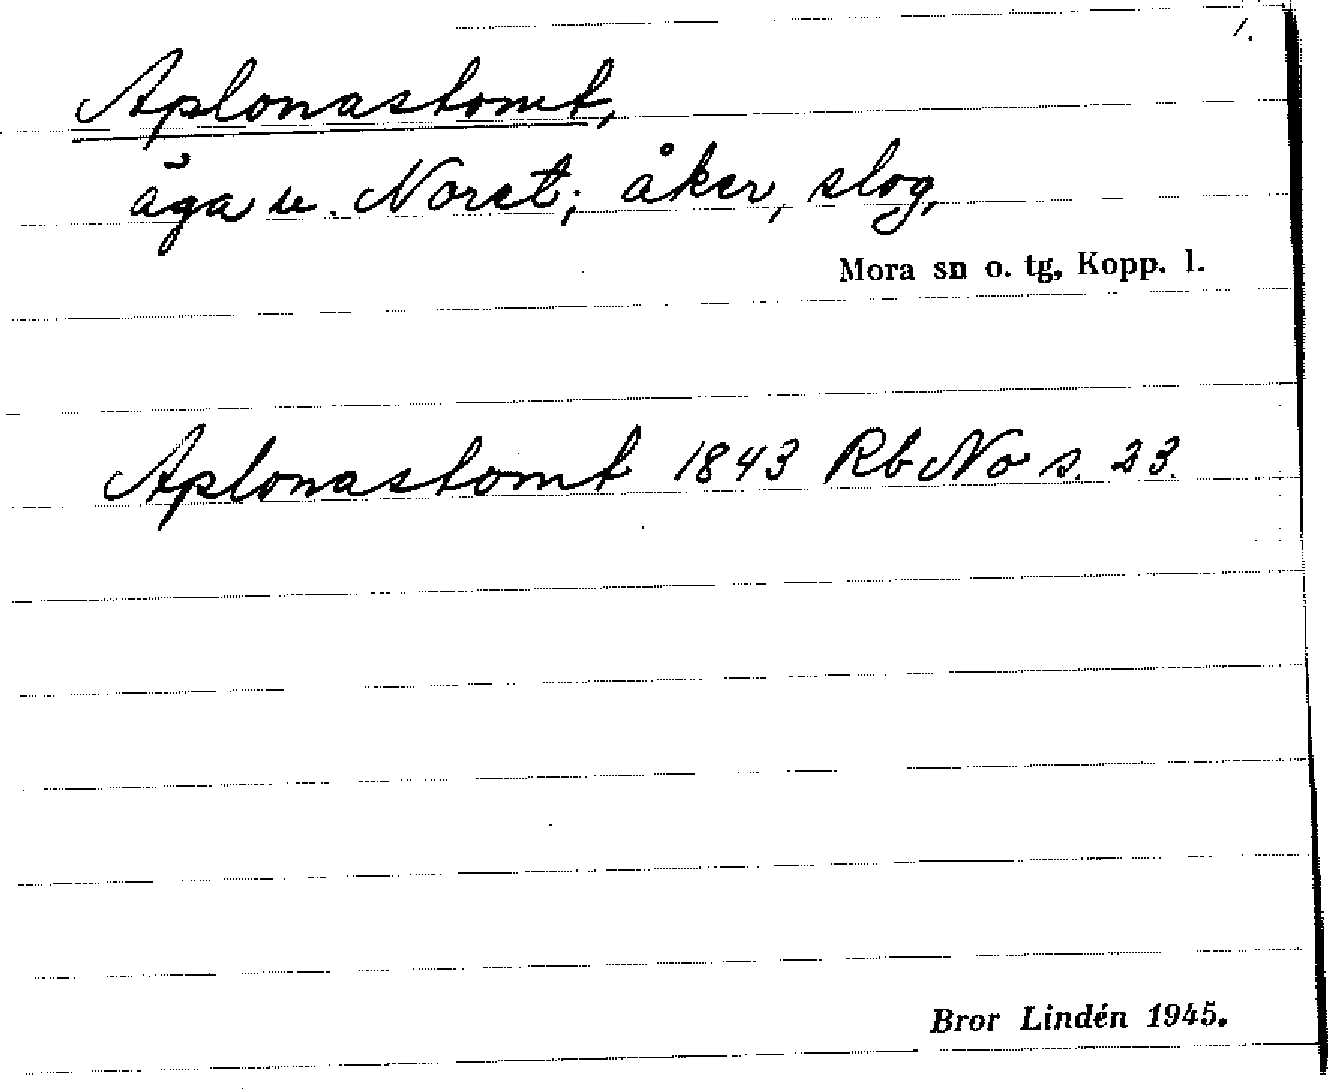 1.
Aplonastomt,
äga u. Noret; åker, slog,
Mora sn o. tg, Kopp. l.
Aplonastomt 1843 Rb No s. 23.
Bror Lindén 1945.